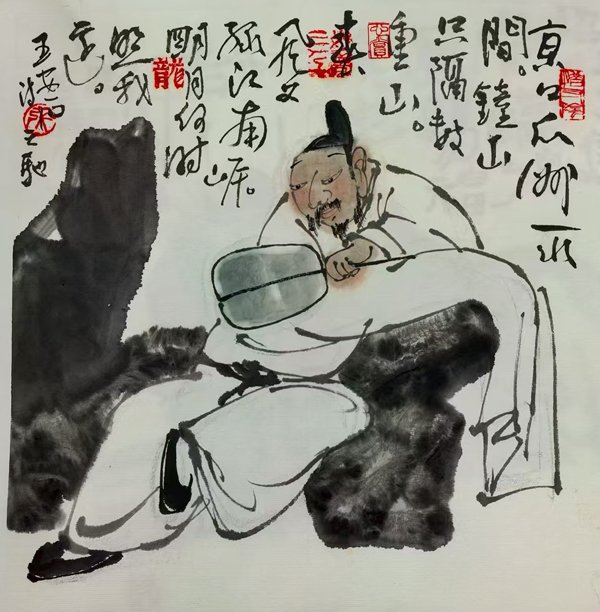 京口瓜洲一水
間。鐘山
只隔數
重山。
春
風又
綠江南岸。
明月何時
照我
還。
王安石
龍